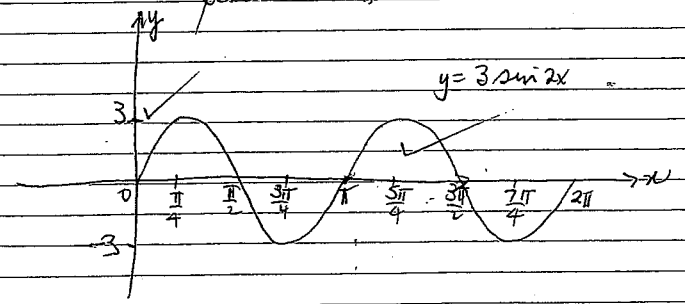 y
y = 3 sin 2x
3
0 π/4 π/2 3π/4 π 5π/4 3π/2 7π/4 2π x
-3